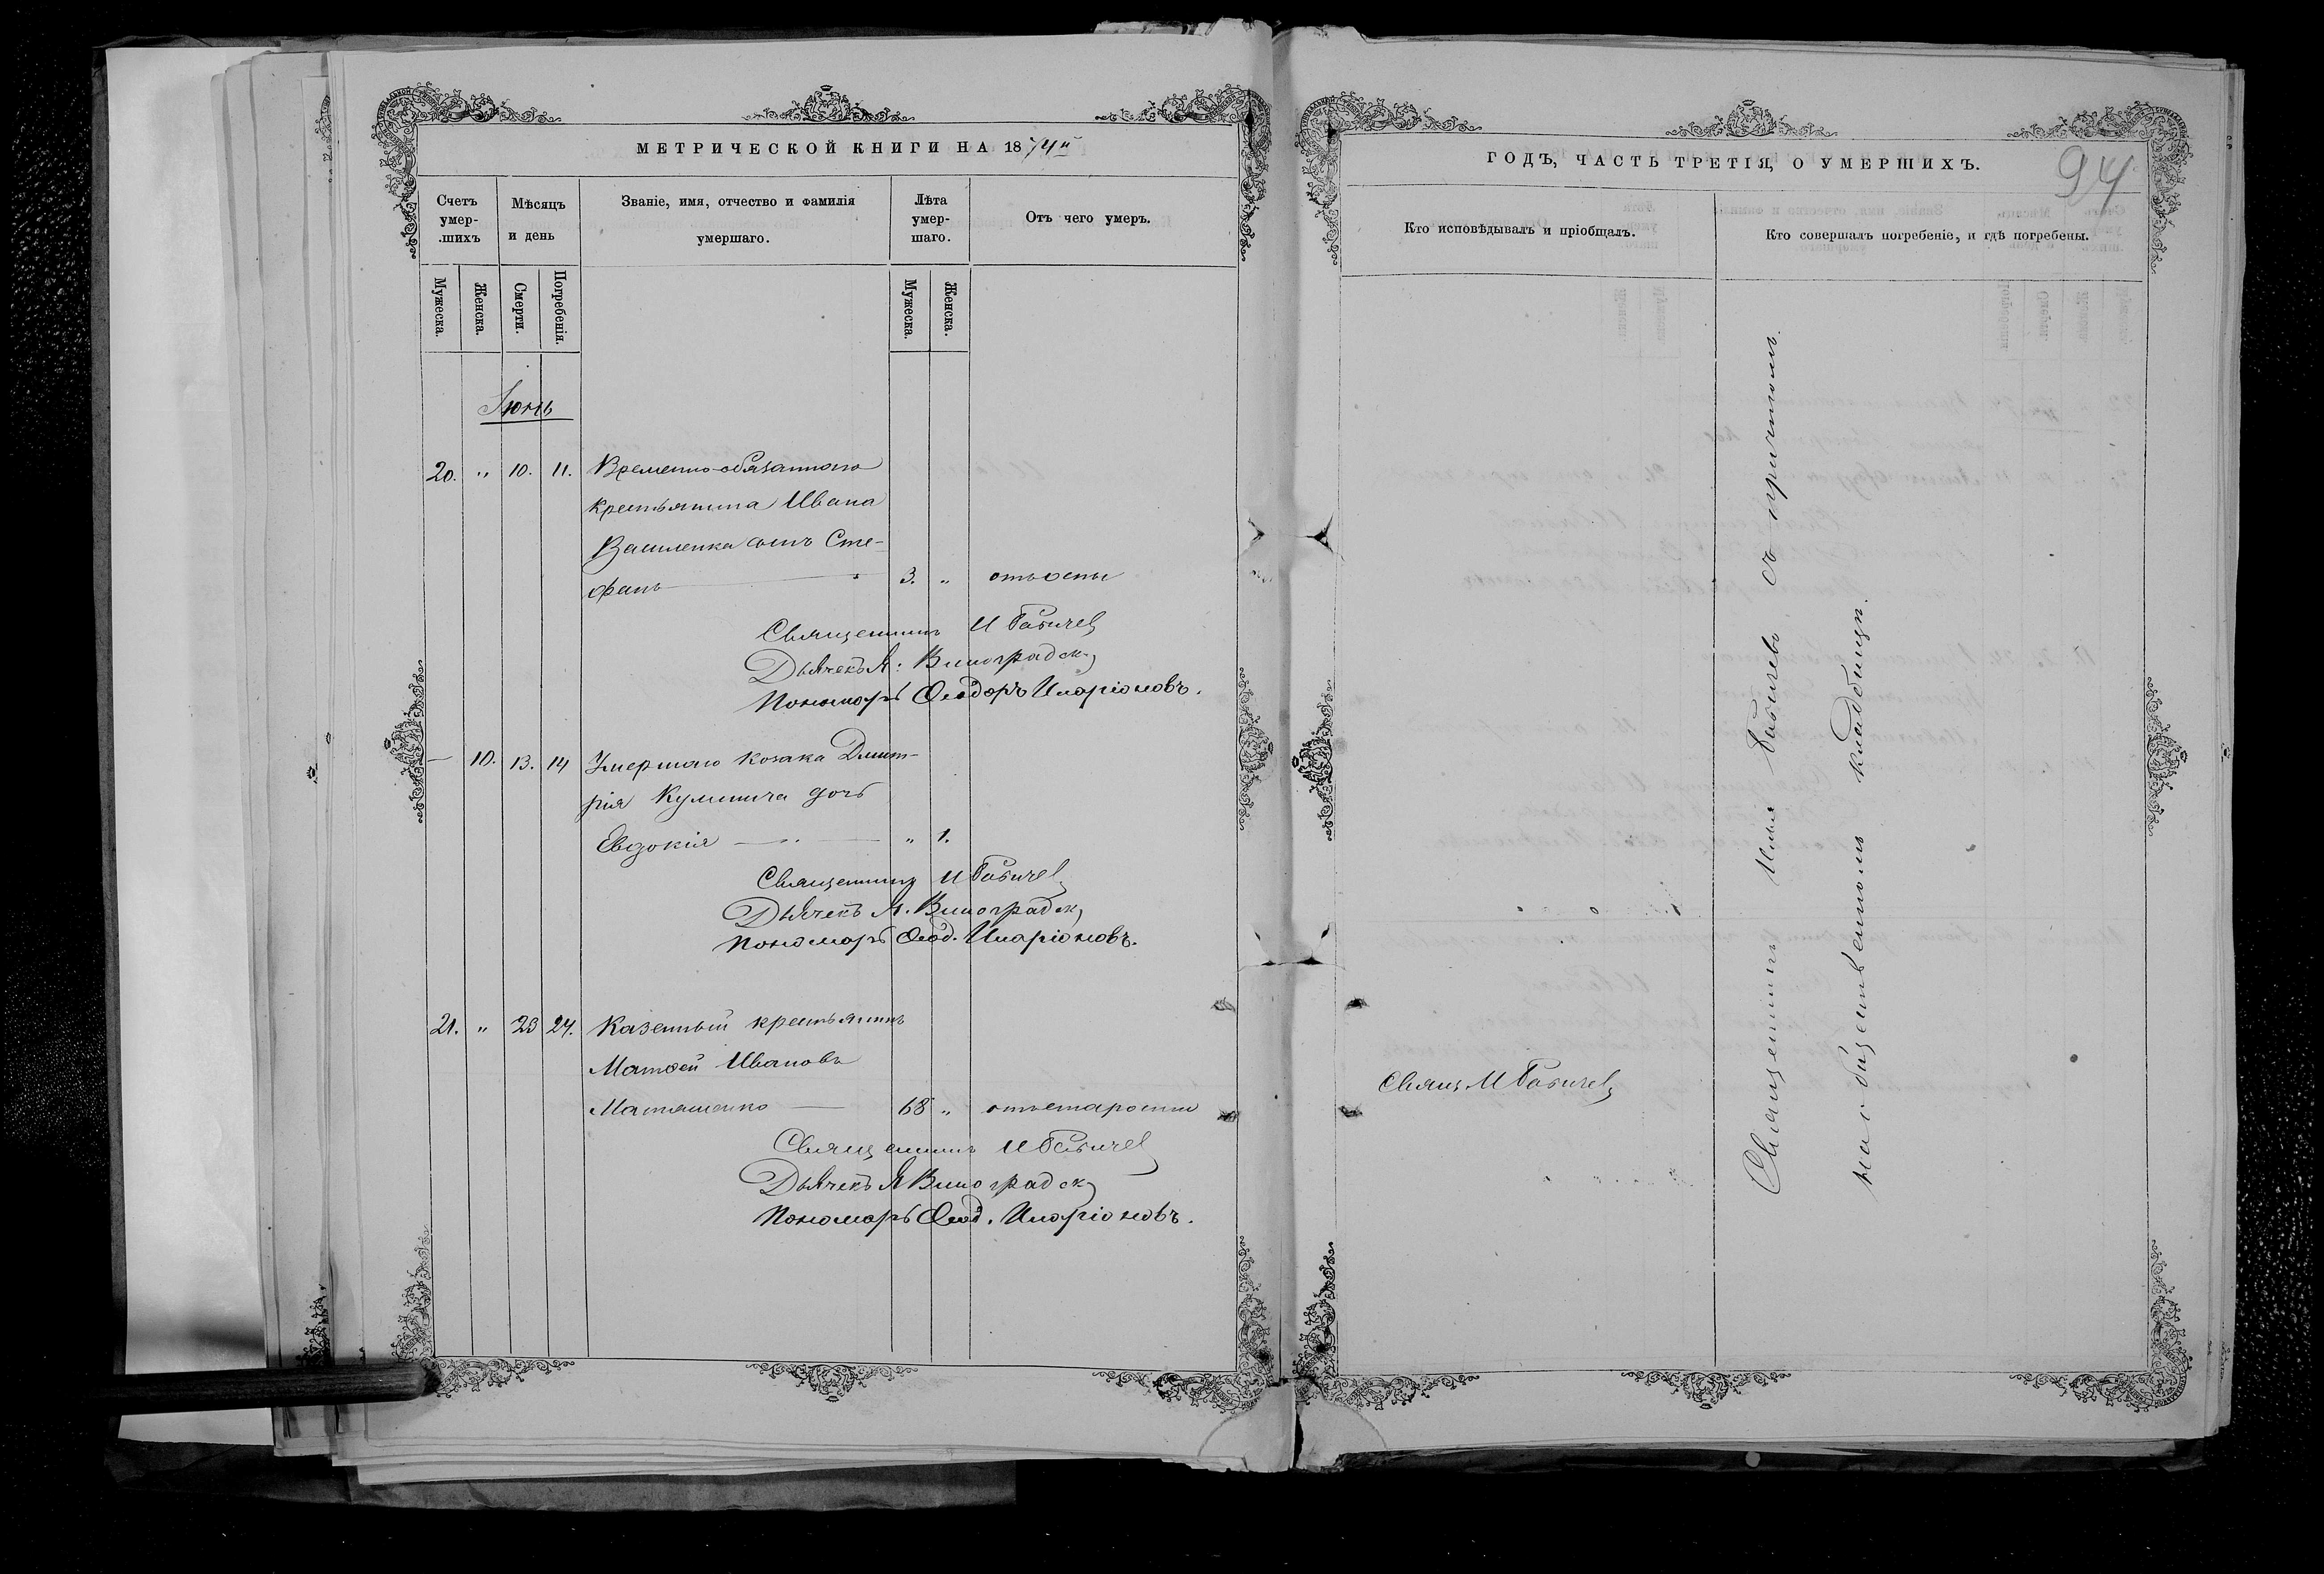 МЕТРИЧЕСКОЙ КНИГИ НА 1874й
Счетъ умер-шихъ
Мѣсяцъ и день
Званіе, имя, отчество и фамилія умершаго.
Лѣта умер-шаго.
Отъ чего умеръ.
Мужеска.
Женска.
Смерти.
Погребенія.
Мужеска.
Женска.
Іюнь
20. " 10. 11. Временно-обязаннаго
крестьянина Ивана
Василенка сынъ Сте-
фанъ 3. " отъ оспы
Священникъ И Бабичев
Дьячекъ Я. Виноградск
Пономарь Ѳеодоръ Иларіоновъ.
— 10. 13. 14 Умершаго козака Дмит-
рія Кулинича дочь
Евдокія " 1.
Священникъ И Бабичев
Дьячекъ Я. Виноградск
Пономарь Ѳеод. Иларіоновъ.
21. " 23 24. Казенный крестьянинъ
Матѳей Ивановъ
Матяшенко 68 " отъ старости
Священникъ И Бабичев
Дьячекъ Я Виноградск
Пономарь Ѳеод. Иларіоновъ.
ГОДЪ, ЧАСТЬ ТРЕТІЯ, О УМЕРШИХЪ.
94
Кто исповѣдывалъ и пріобщалъ.
Кто совершалъ погребеніе, и гдѣ погребены.
Свящ. И Бабичев
Священникъ Илья Бабичевъ съ причтомъ.
на общественномъ кладбищѣ.